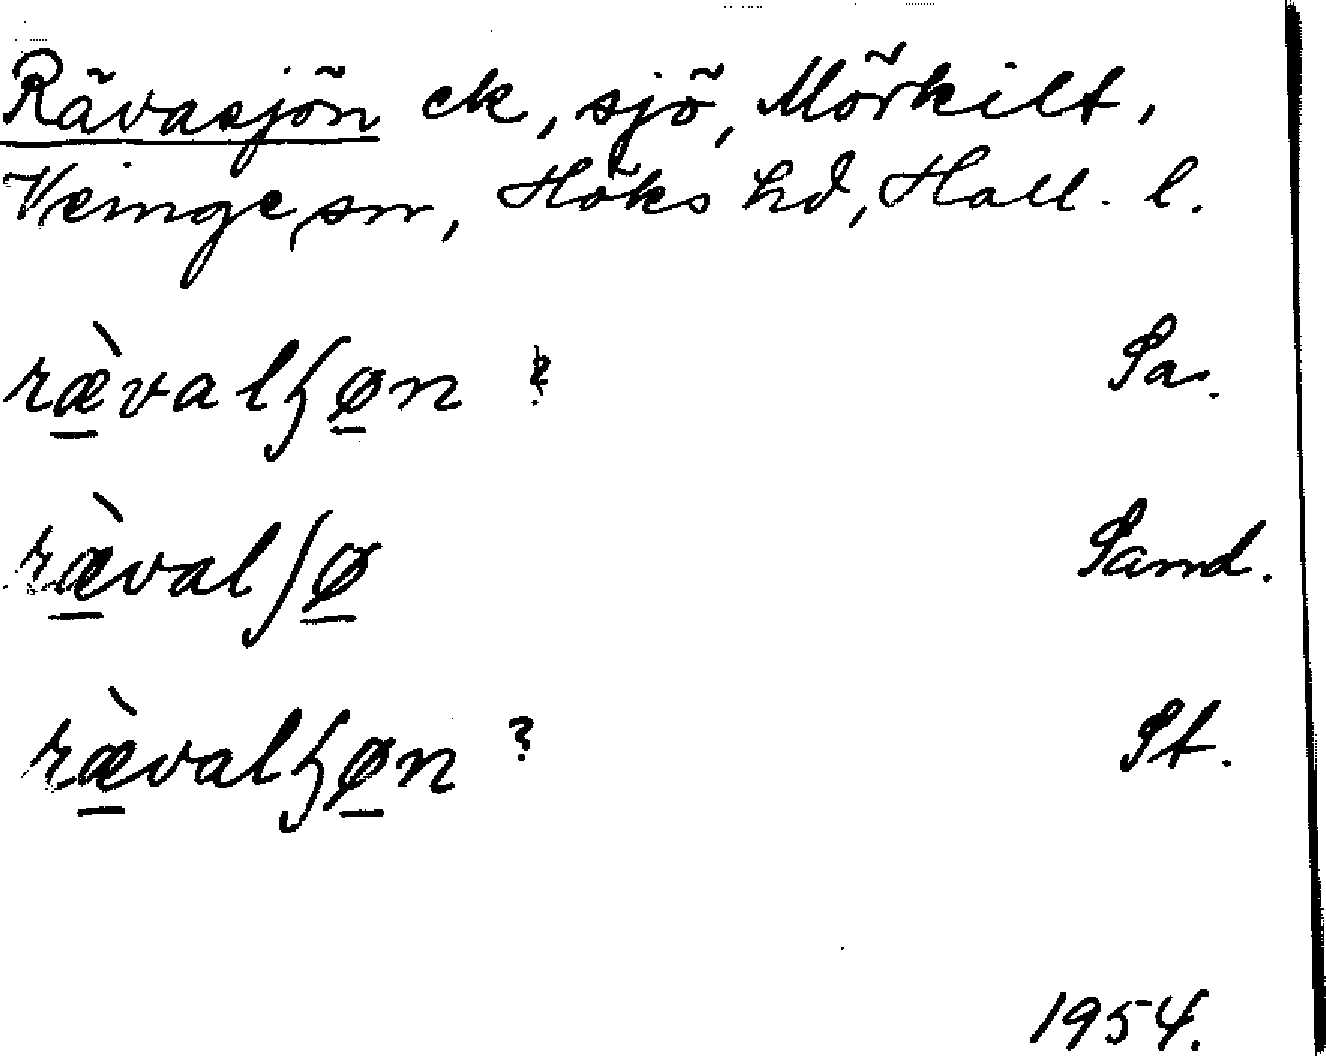 Rävasjön ek, sjö, Mörkilt,
Veinge sn, Höks hd, Hall. l.
rævalʃøn ? Sa.
rævalʃø Sand.
rævalʃøn ? St.
1954.